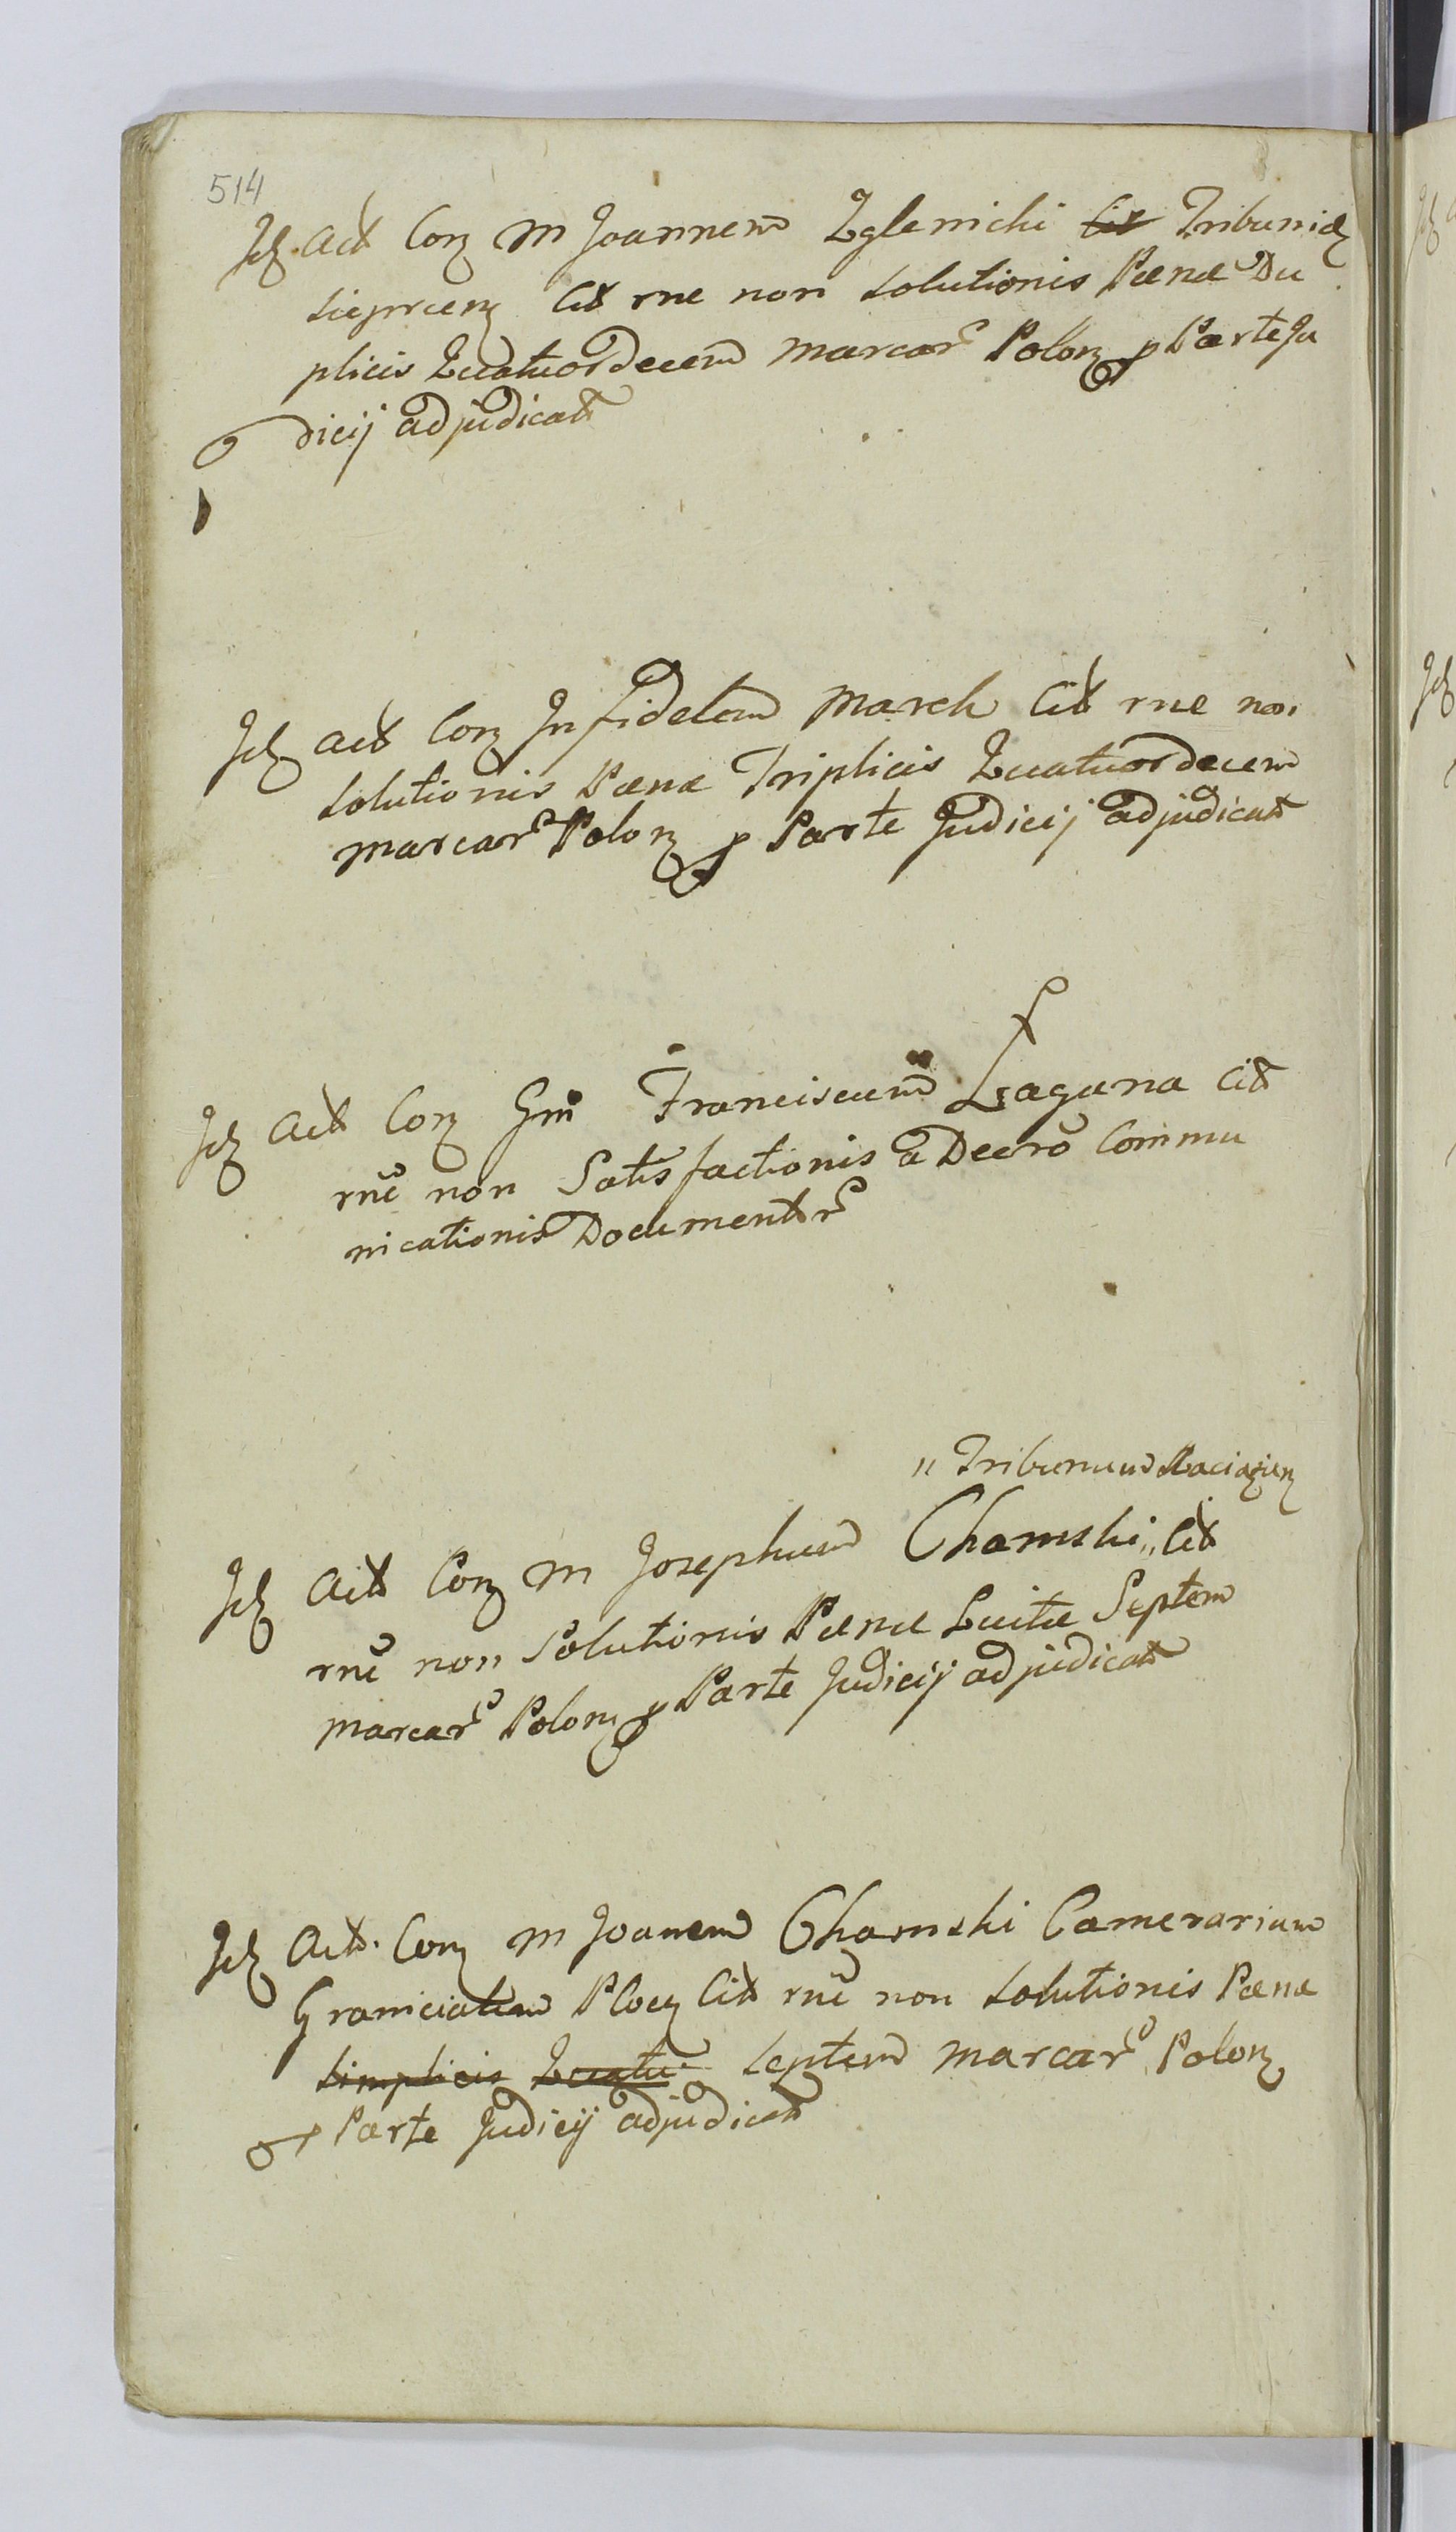 514
Id Act Con M Joannem Zglenicki Cit Tribunid
Sieprcen Cit rne non solutionis Pænæ Du
plicis Quatuordecem marcar Polon p Parte Ju
dicij adjudicat
Id Act Con Infidelem March Cit rne non
solutionis Pænæ Triplicis Quatuordecem
marcar Polon p Parte Judicij adjudicat
Id Act Con Gm Franciscum Łaguna Cit
rne non Satisfactionis a Decro Commu
nicationis Documentr
" Tribunum Raciązien
Id Act Con M Josephum Chamski " Cit
rne non Solutionis Pænæ Luitæ Septem
marcar Polon p Parte Judicij adjudicat
Id Act Con M Joanem Chamski Camerarium
Granicialem Ploc Cit rne non solutionis Pænæ
Simplicis Quatu septem marcar Polon
p Parte Judicij adjudicat